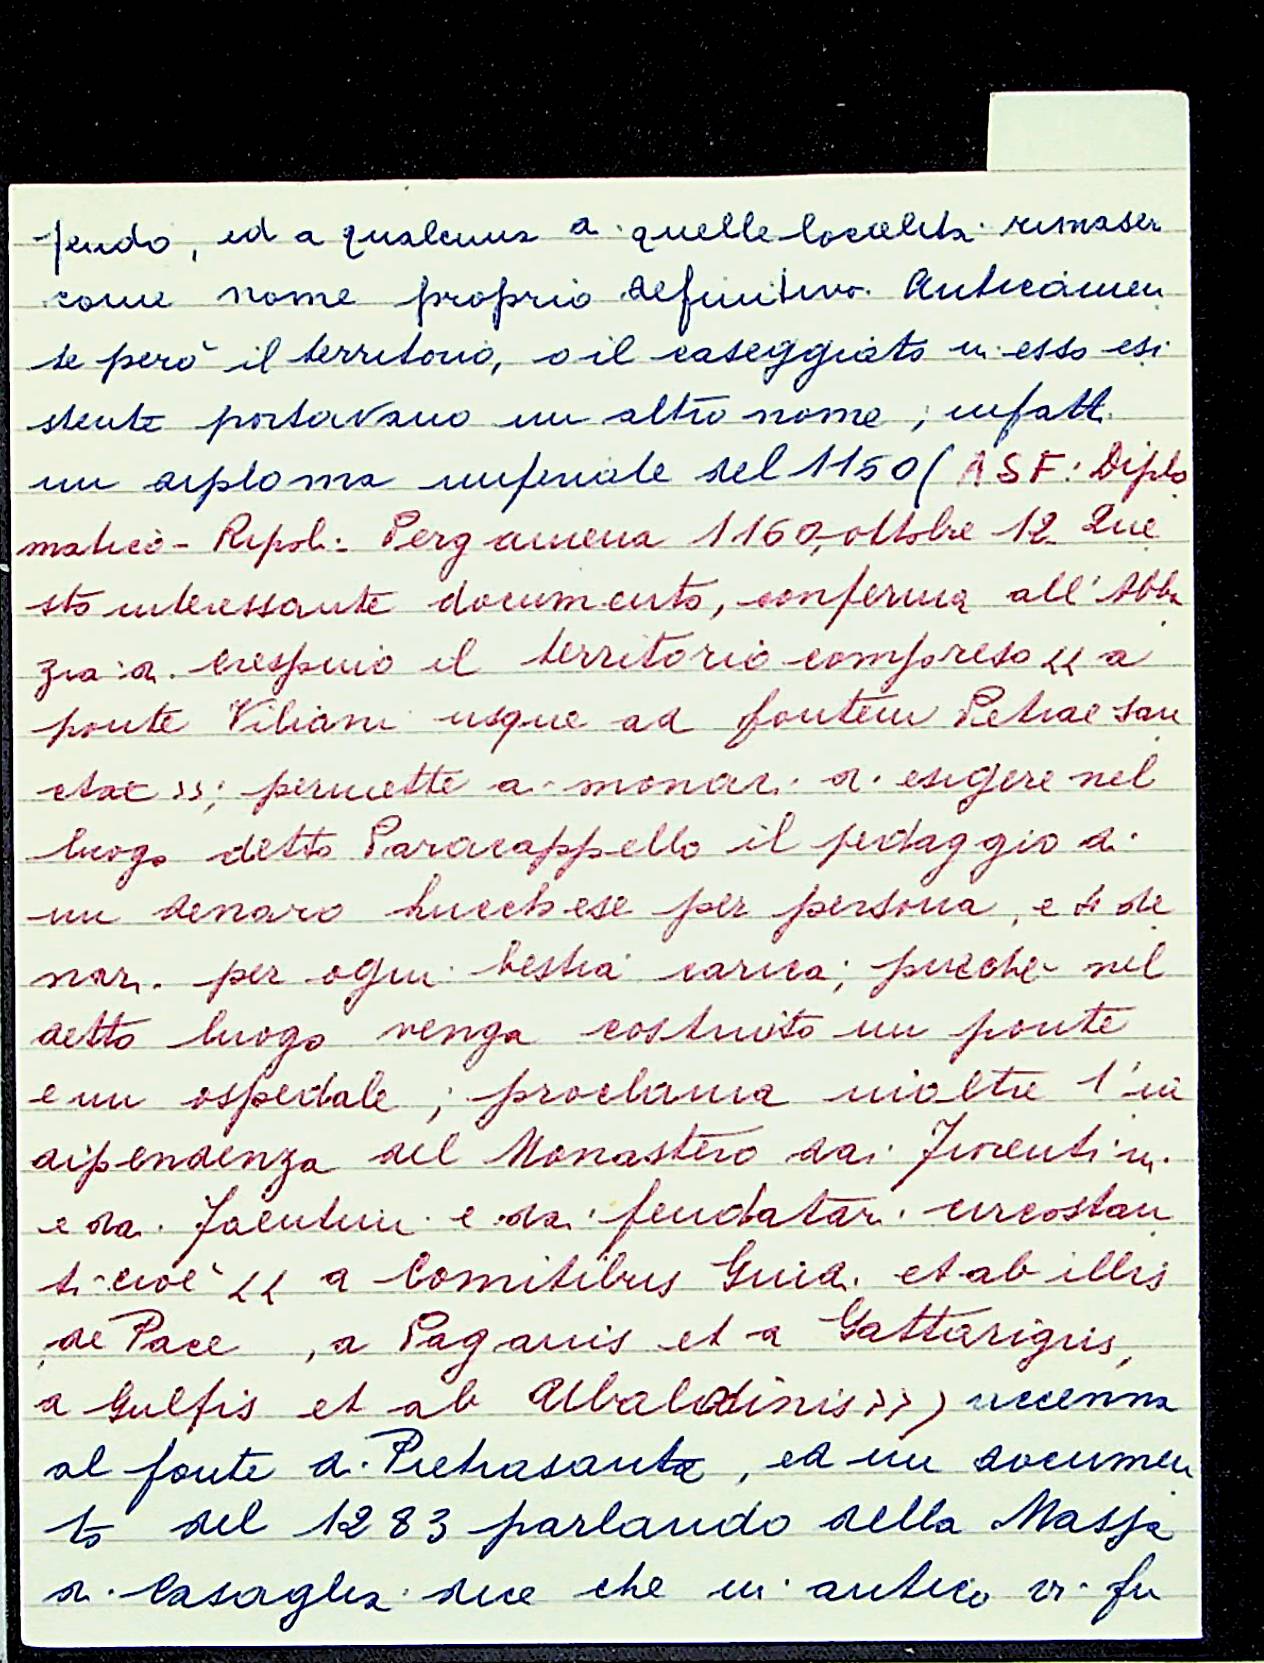 feudo, ed a qualcuna di quelle località rimaser
come nome proprio definitivo. Anticamen
te però il territorio, o il caseggiato in esso esi
stente portavano un altro nome; infatti
un diploma imperiale del 1150 (ASF: Diplo
matico - Ripoli. Pergamena 1160, ottobre 12 Que
sto interessante documento, conferma all'Abba
zia di Crespino il territorio compreso << a
ponte Viliani usque ad fontem Petrae san
ctae >>; permette ai monaci di esigere nel
luogo detto Paracappello il pedaggio di
un denaro lucchese per persona, e di de
nari per ogni bestia carica; purchè nel
detto luogo venga costruito un ponte
e un ospedale; proclama inoltre l'in
dipendenza del Monastero dai Fiorentini
e dai Faentini e dai feudatari circostan
ti cioè << a Comitibus Guidi et ab illis
de Pace, a Paganis et a Gattarignis,
a Gulfis et ab Ubaldinis >>) accenna
al fonte di Pietrasanta, ed un documen
to del 1283 parlando della Massa
di Casaglia dice che in antico vi fu